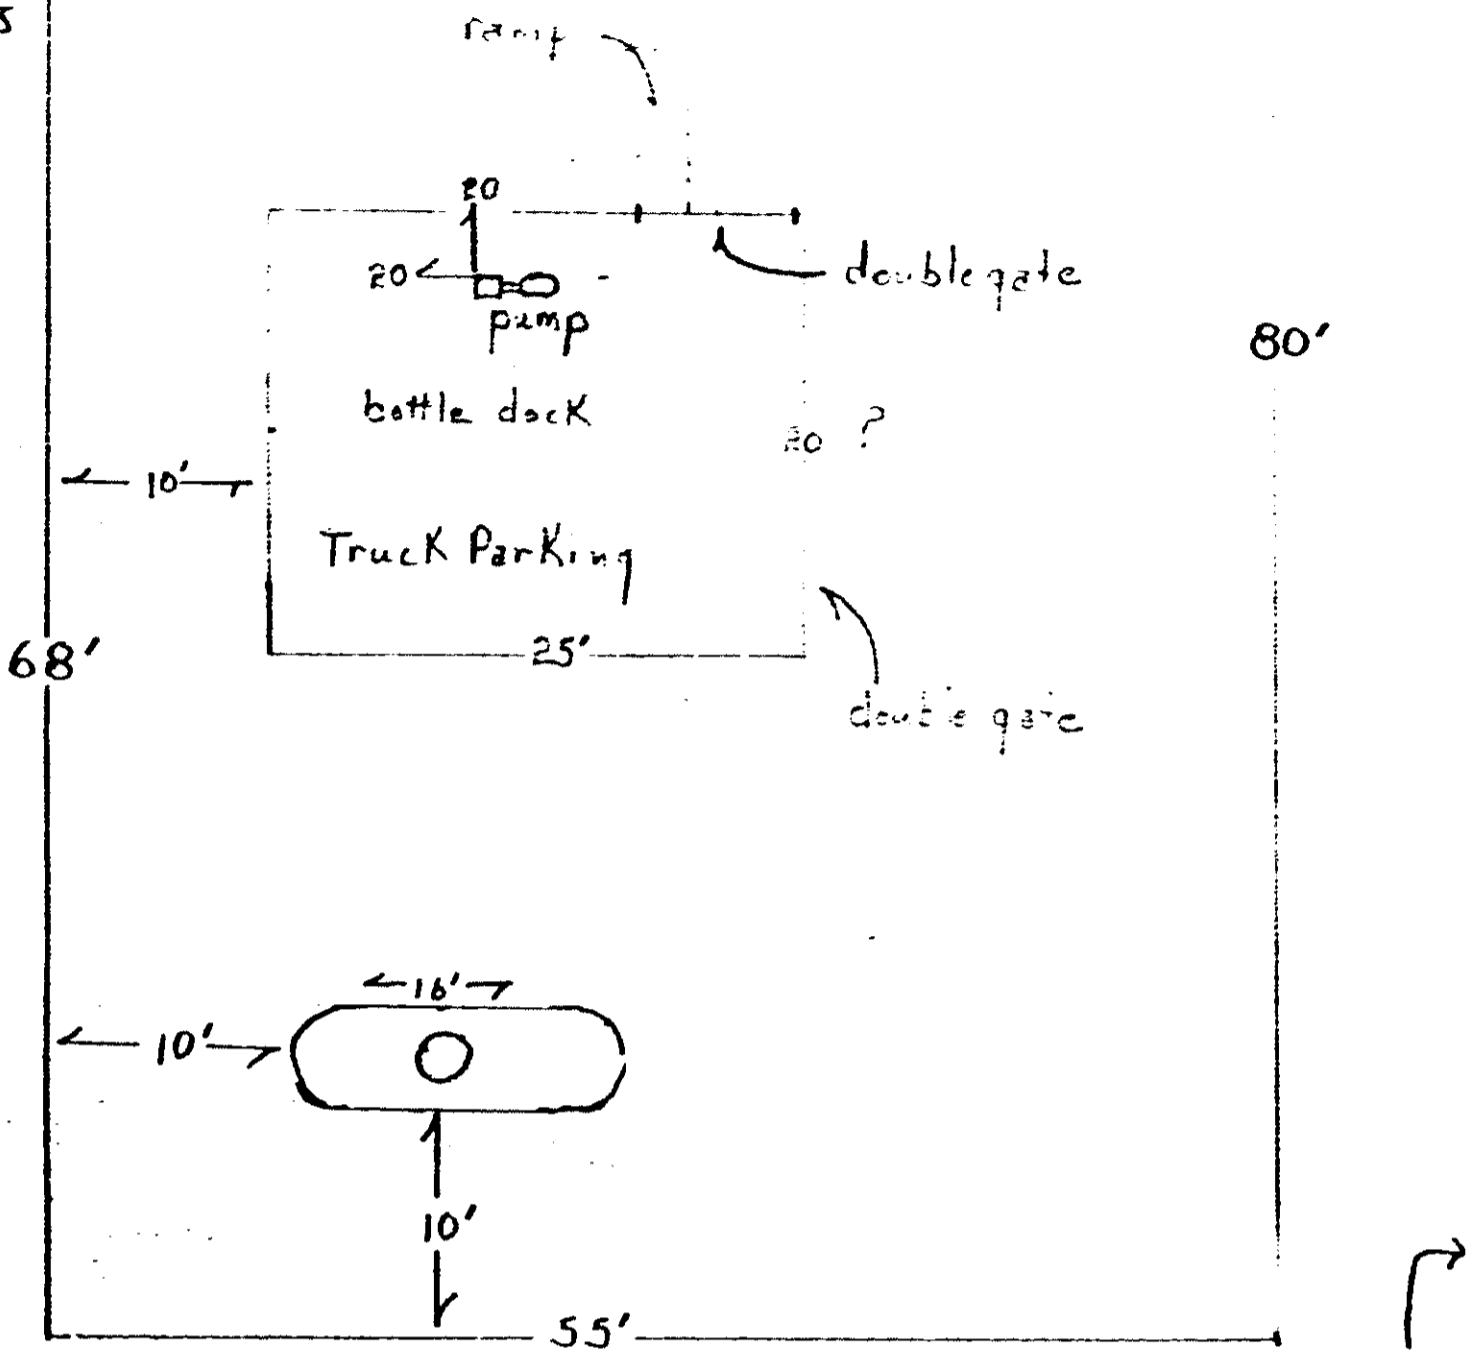 ramp
20
20
double gate
pump
80'
bottle dock
20 ?
10'
Truck Parking
68'
25'
double gate
16'
10'
10'
55'